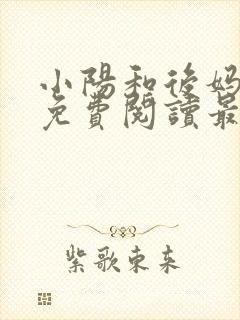 小陽和後媽
免費閱讀最
紫歌東来